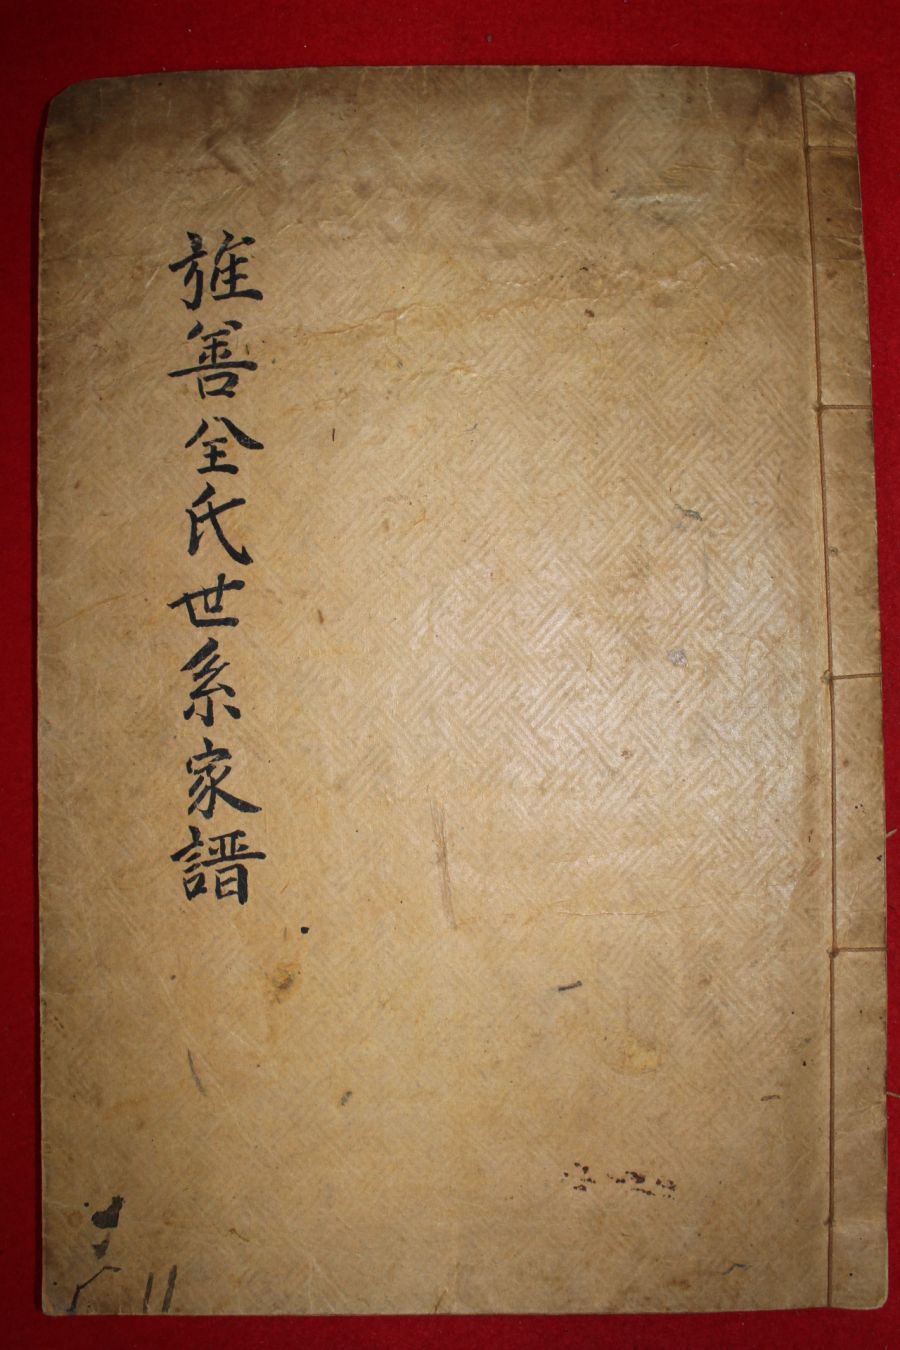 旌善全氏世系家譜
11